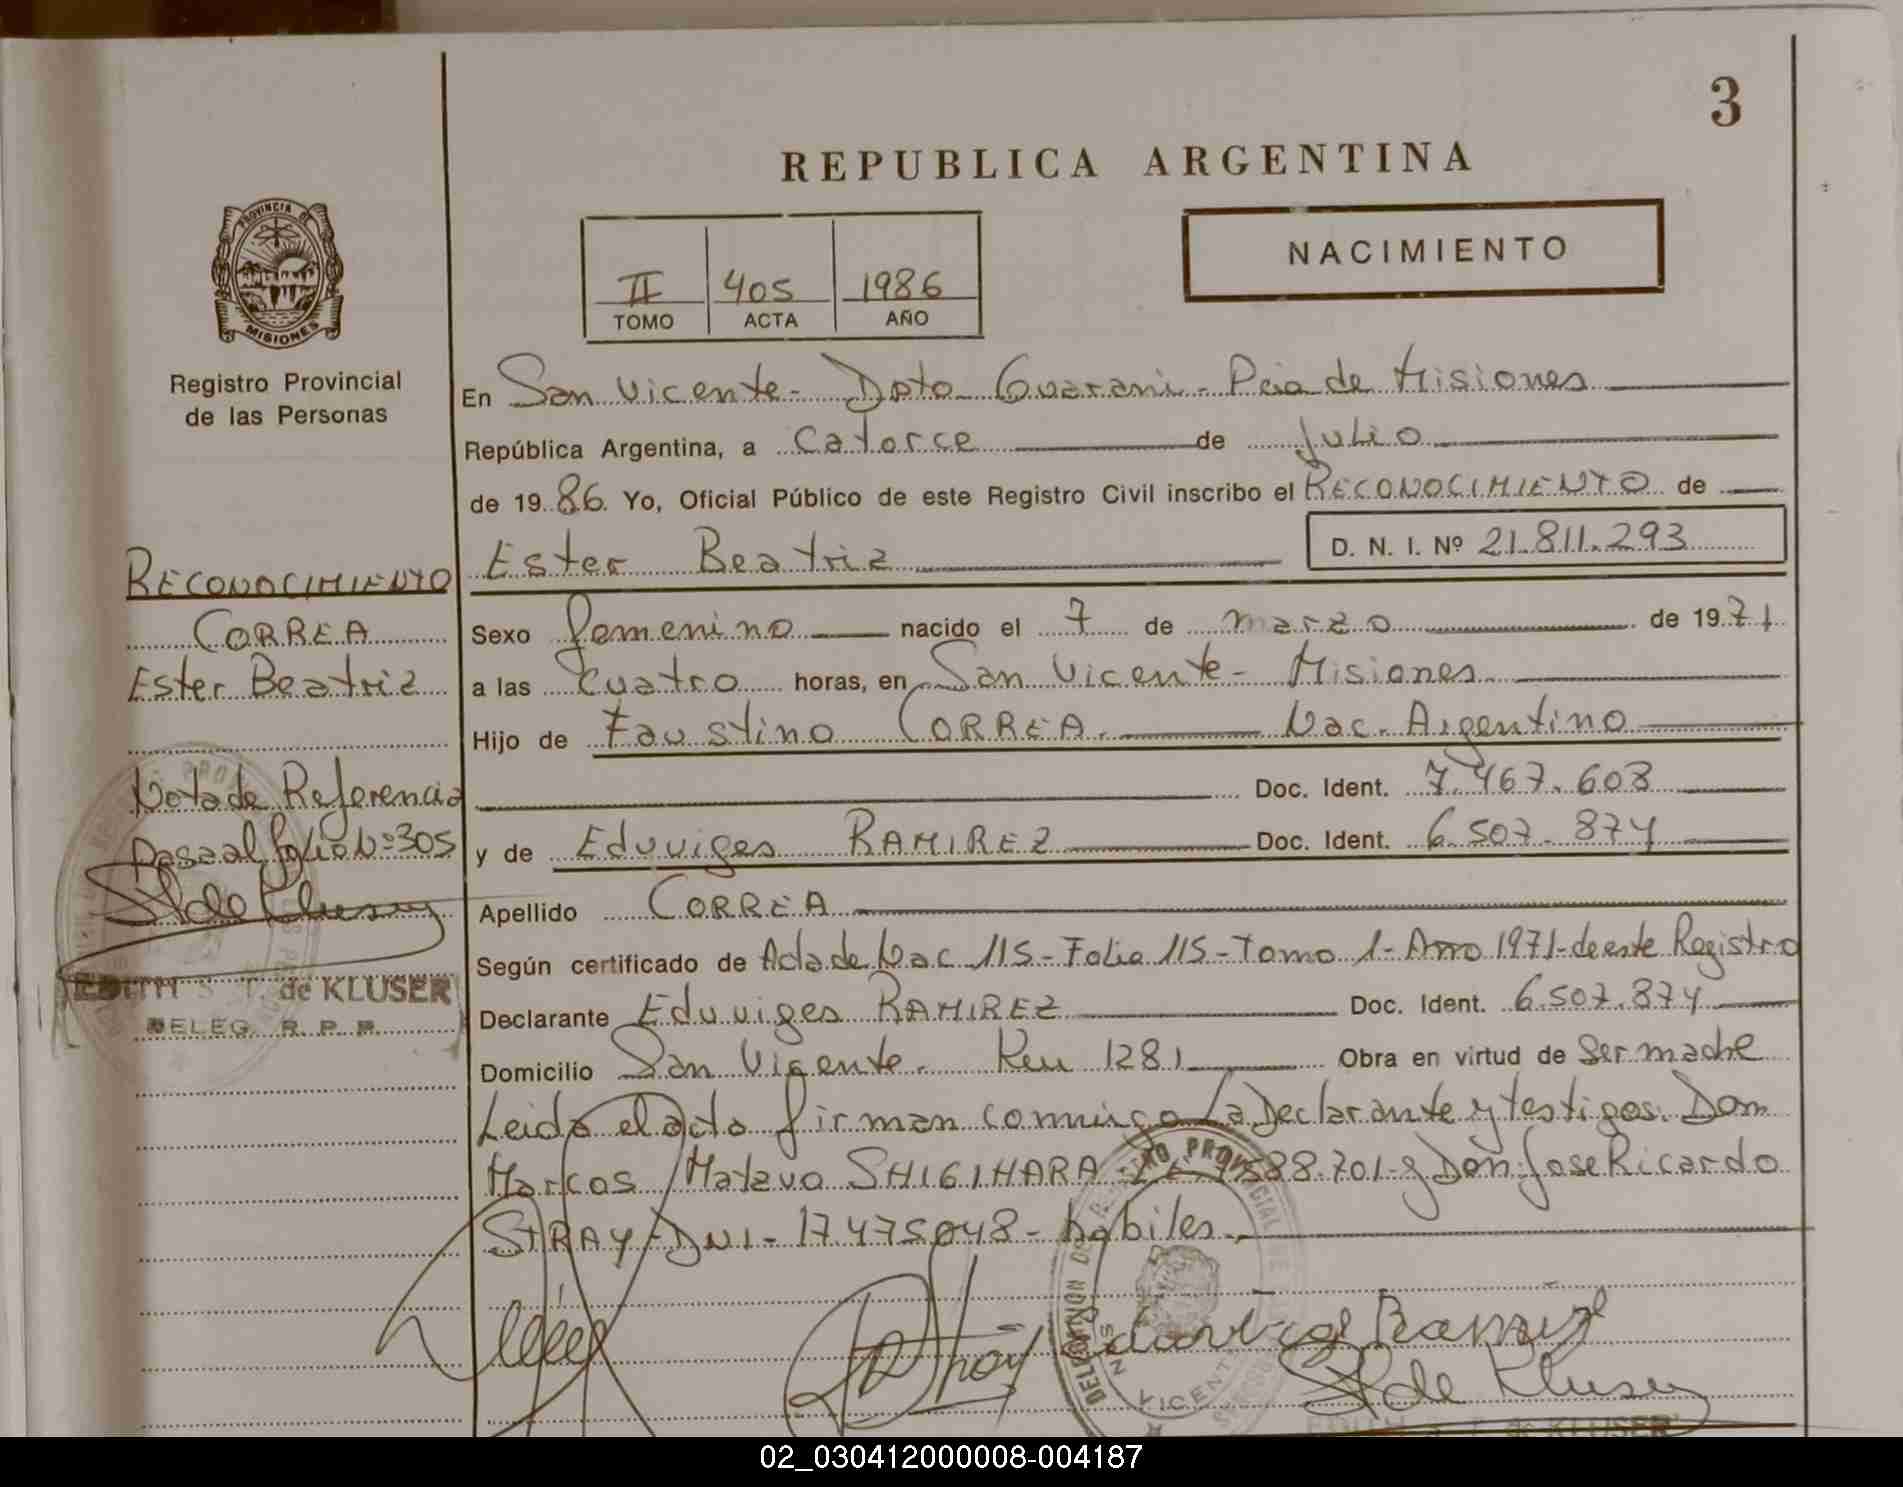 3
REPUBLICA ARGENTINA
NACIMIENTO
II 405 1986
TOMO ACTA AÑO
PROVINCIA DE
MISIONES
Registro Provincial
de las Personas
En San Vicente - Dpto Guarani - Pcia de Misiones
República Argentina, a Catorce de Julio
de 1986. Yo, Oficial Público de este Registro Civil inscribo el RECONOCIMIENTO de
Ester Beatriz D. N. I. Nº 21.811.293
RECONOCIMIENTO
CORREA
Ester Beatriz
Nota de Referencia
Pasa al folio Nº 305
EDITH S. T. de KLUSER
DELEG. R. P. P.
Sexo femenino nacido el 7 de marzo de 1971
a las cuatro horas, en San Vicente - Misiones
Hijo de Faustino CORREA. Nac. Argentino
Doc. Ident. 7.467.603
y de Eduviges RAMIREZ Doc. Ident. 6.507.874
Apellido CORREA
Según certificado de Acta de Nac 115 - Folio 115 - Tomo 1 - Año 1971 - de este Registro
Declarante Eduviges RAMIREZ Doc. Ident. 6.507.874
Domicilio San Vicente. Km 1281 Obra en virtud de Ser madre
Leida el acta firman conmigo La Declarante y testigos. Don
Marcos Matzuo SHIGIHARA 7588.701 y Don Jose Ricardo
STRAY - DNI - 17475048 - habiles.
Eduviges Ramirez
S T de Kluser
EDITH S. T. de KLUSER
02_030412000008-004187